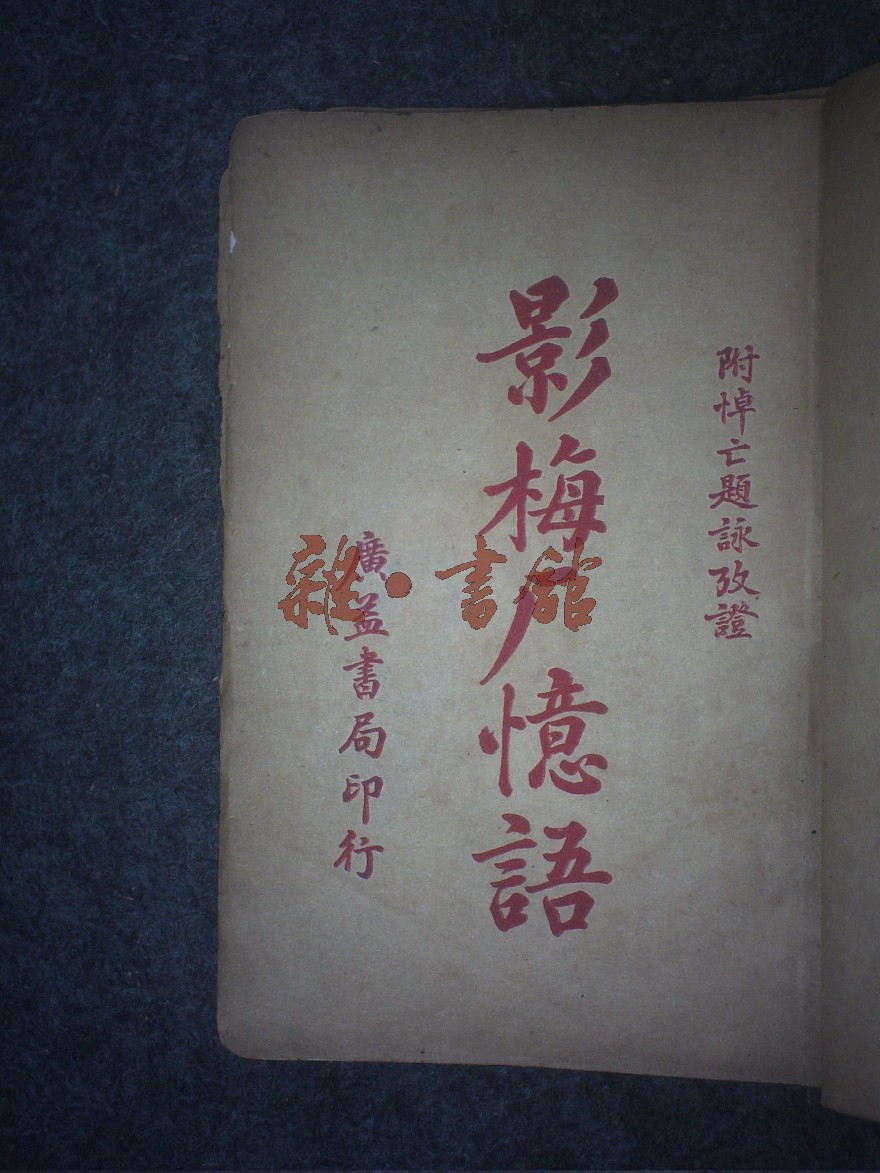 附悼亡題詠攷證
影梅厂憶語
廣益書局印行
雜·書館